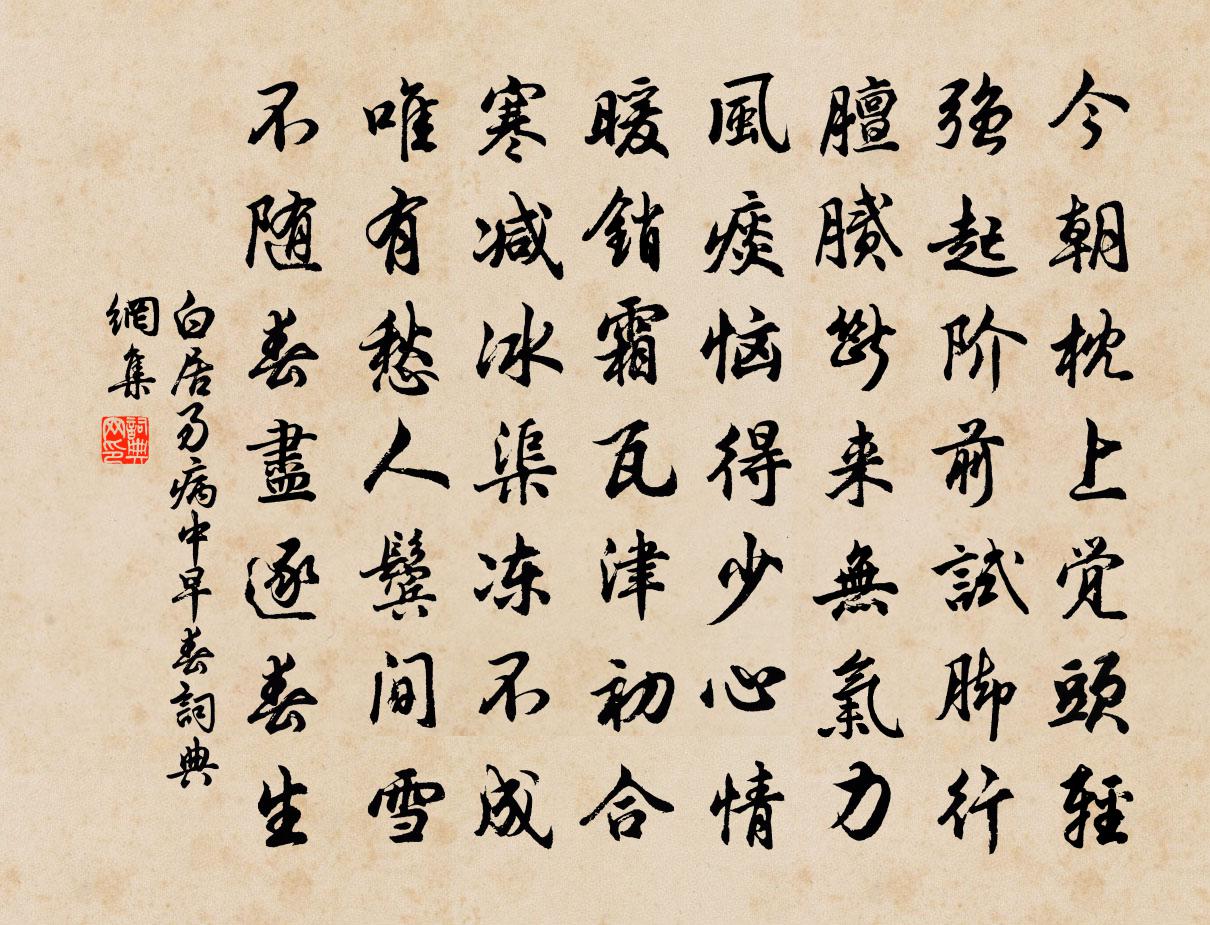 今朝枕上覚頭輕
强起阶前試脚行
膻膩断来無氣力
風痰恼得少心情
暖銷霜瓦津初合
寒减冰渠冻不成
唯有愁人鬢间雪
不随春盡逐春生
白居易病中早春詞典
網集
詞典
网印